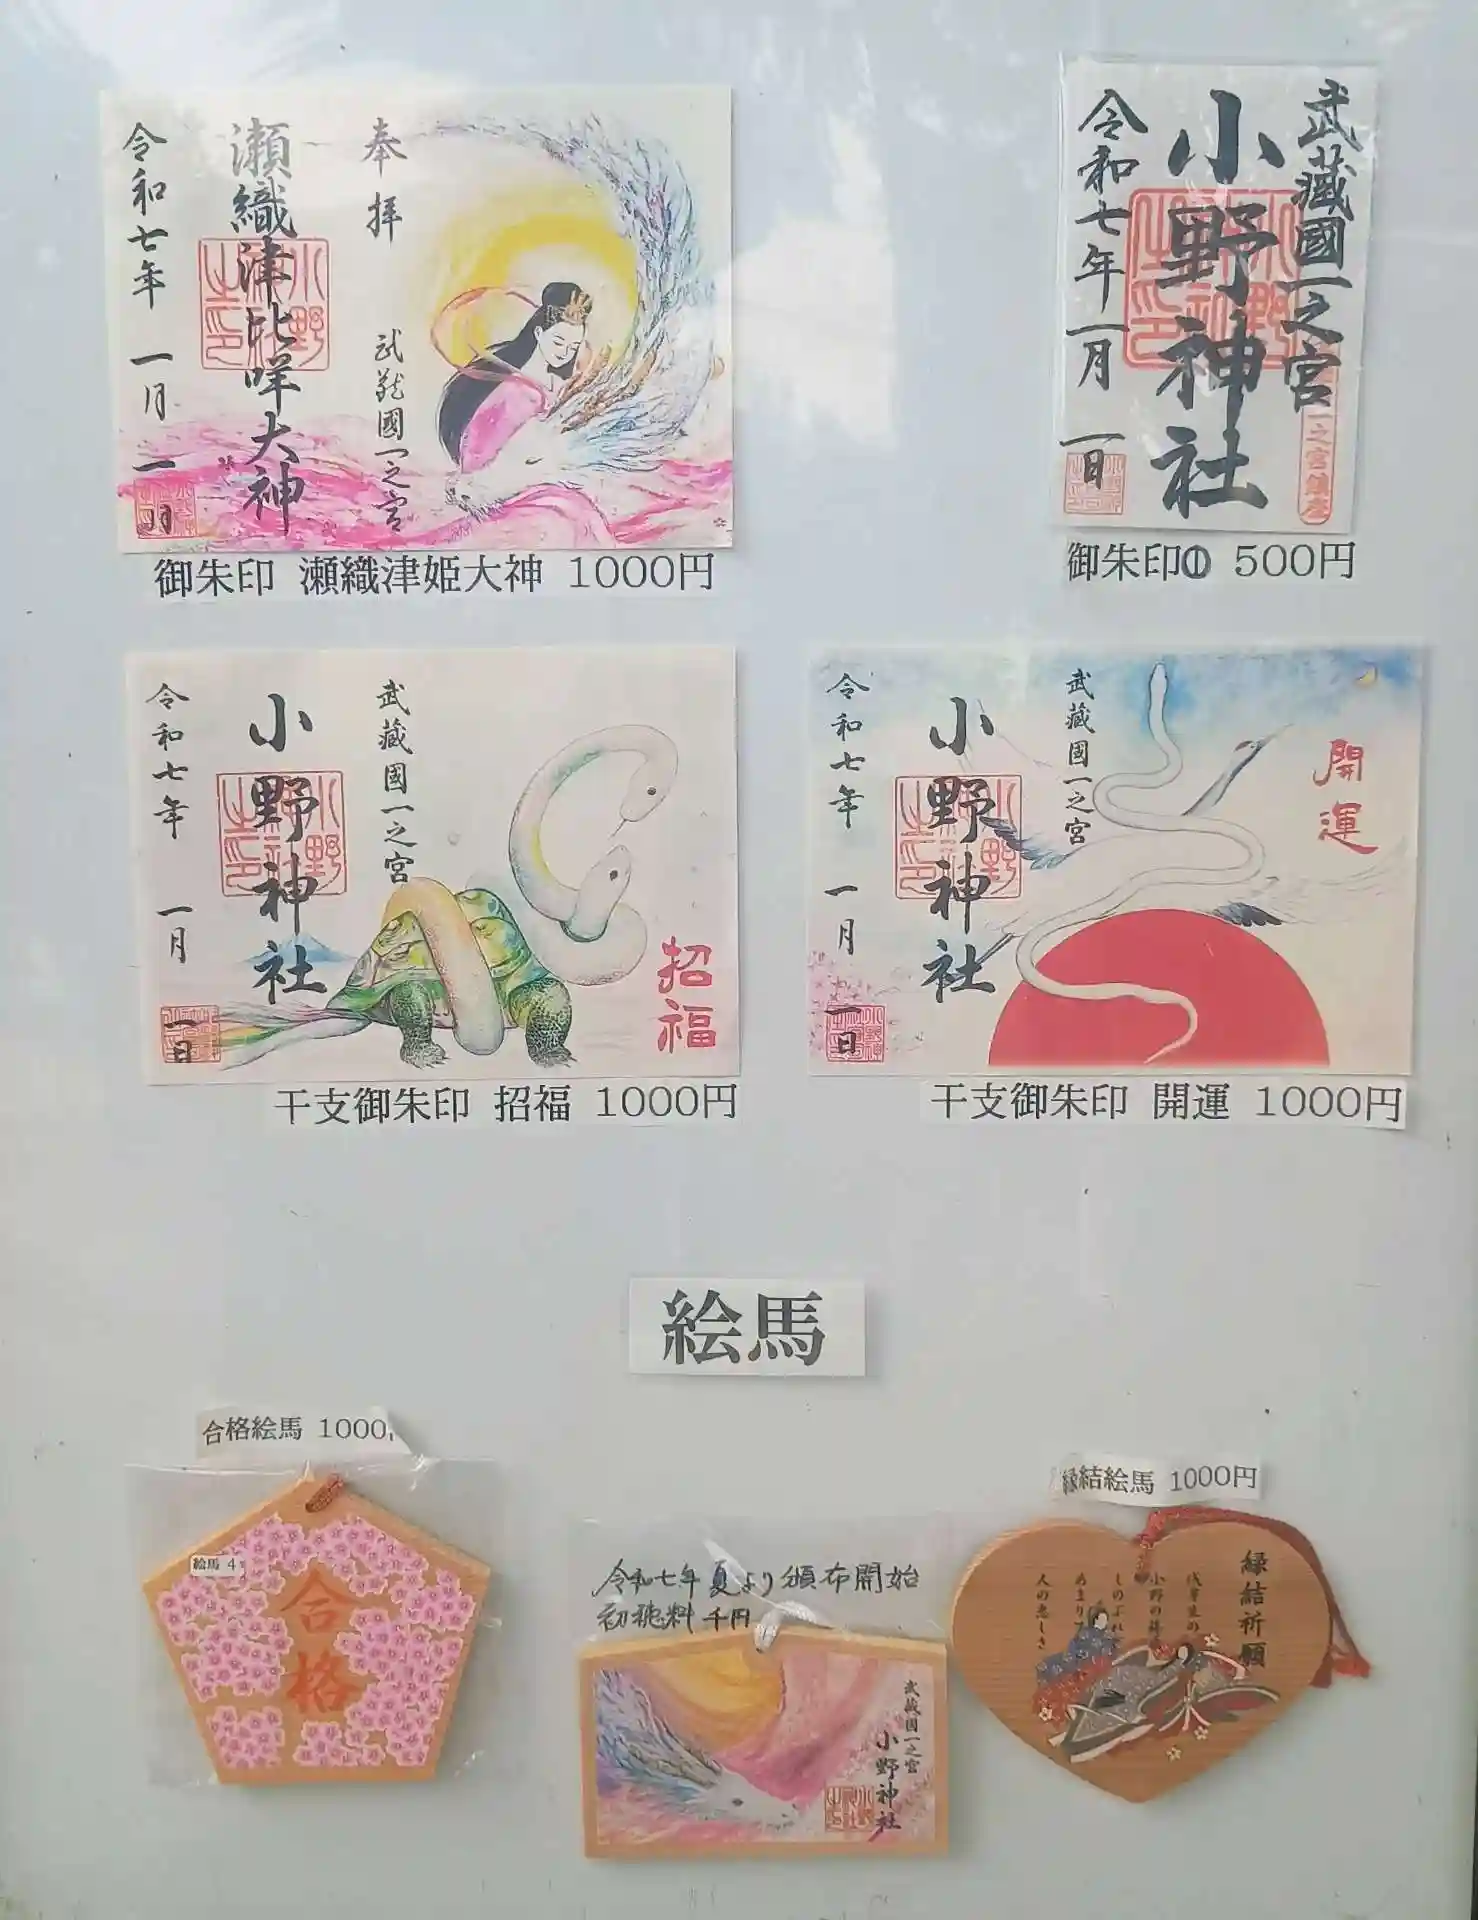 奉拝
武蔵國一之宮
瀬織津比咩大神
令和七年 一月 一日
御朱印 瀬織津姫大神 1000円
武蔵國一之宮
小野神社
一之宮鎮座
令和七年一月一日
御朱印① 500円
招福
武蔵國一之宮
小野神社
令和七年 一月 一日
干支御朱印 招福 1000円
開運
武蔵國一之宮
小野神社
令和七年 一月 一日
干支御朱印 開運 1000円
絵馬
合格絵馬 1000
絵馬 4
合格
令和七年夏より頒布開始
初穂料 千円
武蔵國一之宮
小野神社
縁結絵馬 1000円
縁結祈願
人の恋しき